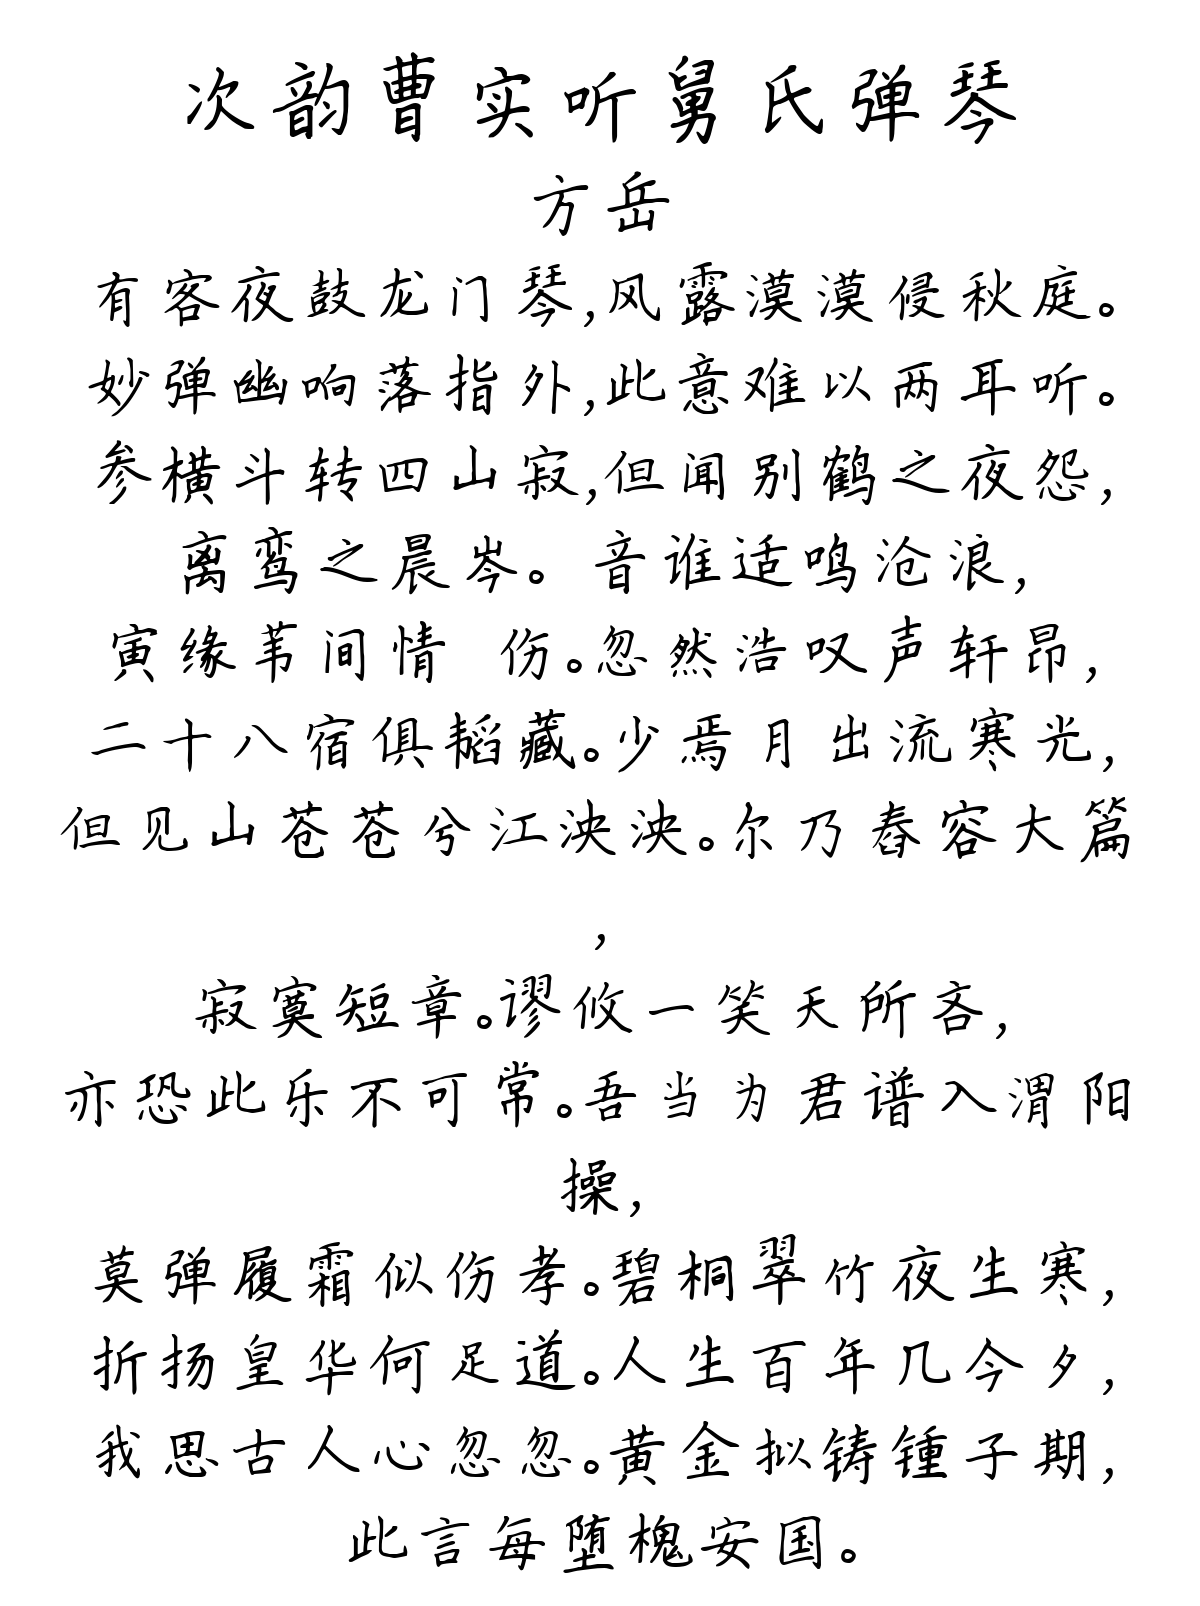 次韵曹实听舅氏弹琴
方岳
有客夜鼓龙门琴,风露漠漠侵秋庭。
妙弹幽响落指外,此意难以两耳听。
参横斗转四山寂,但闻别鹤之夜怨,
离鸾之晨岑。音谁适鸣沧浪,
寅缘苇间情 伤。忽然浩叹声轩昂,
二十八宿俱韬藏。少焉月出流寒光,
但见山苍苍兮江泱泱。尔乃舂容大篇
,
寂寞短章。谬攸一笑天所吝,
亦恐此乐不可常。吾当为君谱入渭阳
操,
莫弹履霜似伤孝。碧桐翠竹夜生寒,
折扬皇华何足道。人生百年几今夕,
我思古人心忽忽。黄金拟铸锺子期,
此言每堕槐安国。